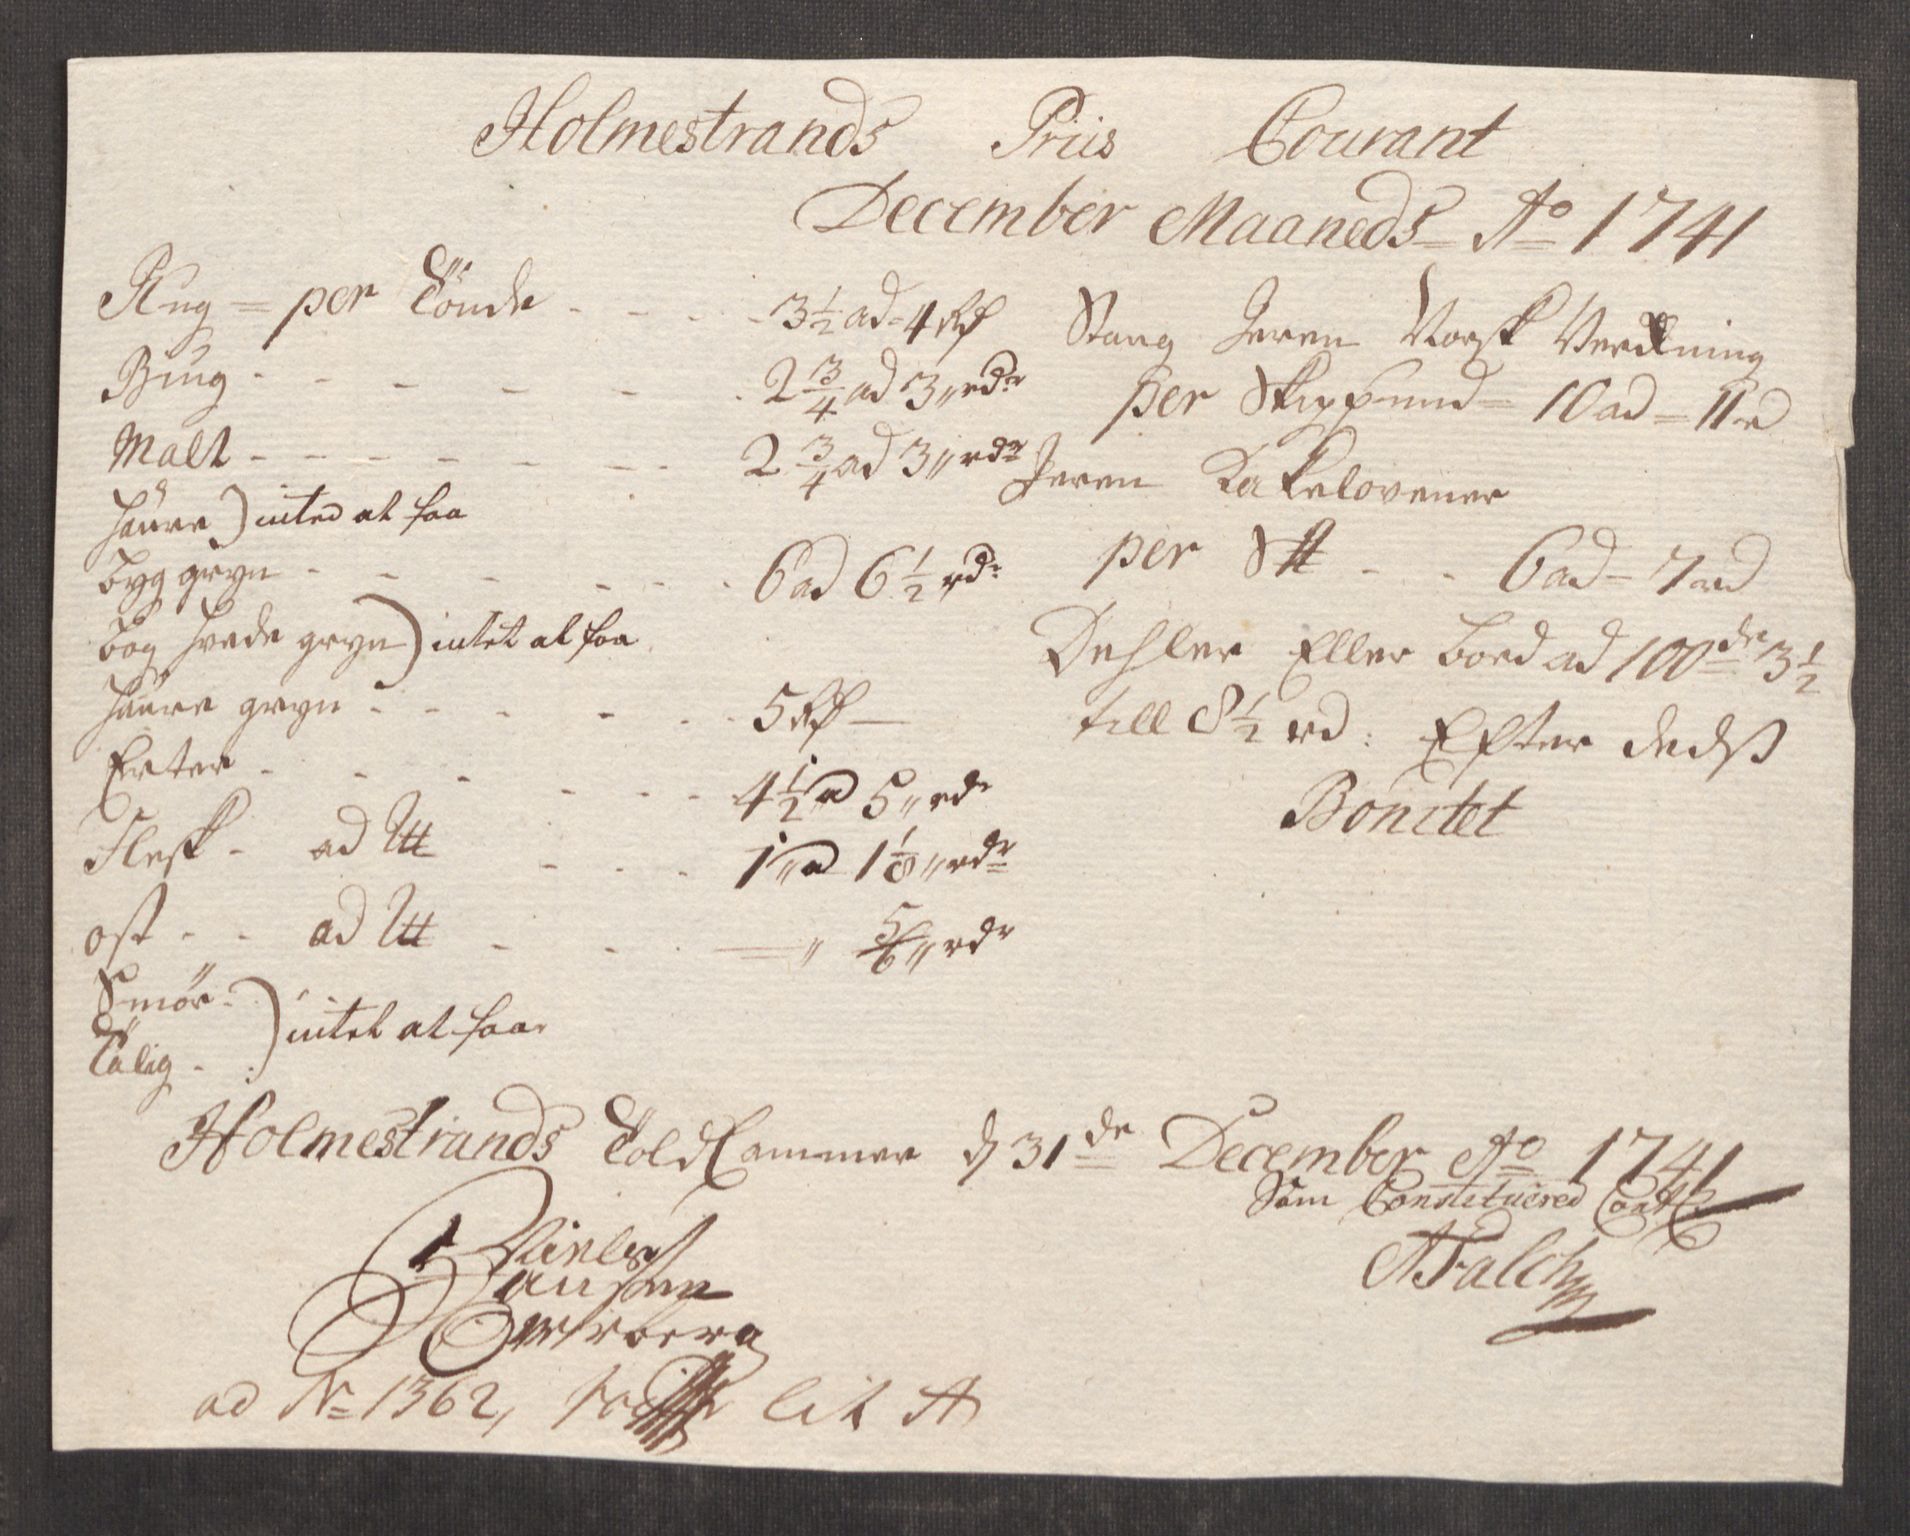 Holmestrands Priis Courant
December Maaneds Ao 1741
Rug = per Tönde - - - - 3½ ad 4 Rd
Biug - - - - - - 2¾ ad 3,, rdr
Malt - - - - - - - 2¾ ad 3,, rdr
Haure ) inted at faa
Byg gryn - - - - - - 6 ad 6½ rdr
Bog Hvede gryn ) intet at faa
Haure gryn - - - - - - 5 Rd
Erter - - - - - - 4½ a 5,, rdr
Flesk - ad W - - - 1,, a 1⅛,, rdr
ost - - ad W - - - ,, 5/6,, rdr
Smör - )
Talig - : ) intet at faa
Stang Jeren Norsk Verckning
per Skippund = 10 ad = 11 rd
Jeren Kakelovener
per St - - 6 ad - 7 rd
Dehler Eller bord ad 100de 3½
till 8½ rd: Efter dedss
Bonitet
Holmestrands Told Cammer d 31de December Ao 1741
Som Constituered
Niels
Hansen
AFalch
ad No 1362, lit A